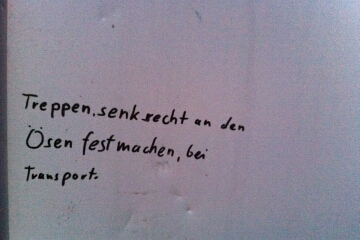 Treppen, senkrecht an den
Ösen festmachen, bei
Transport.